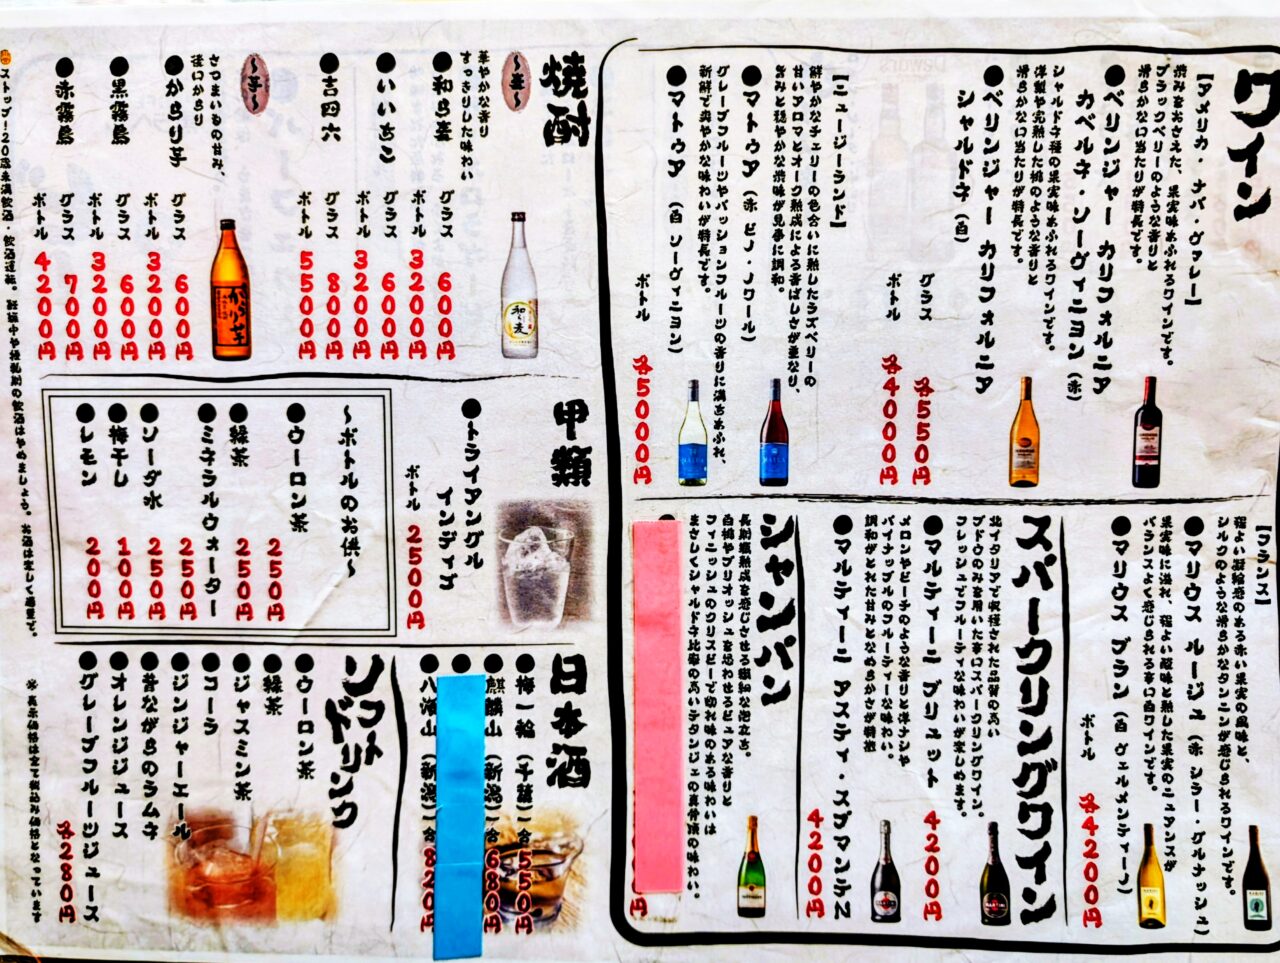 ワイン
【アメリカ・ナパ・ヴァレー】
渋みをおさえた、果実味あふれるワインです。
ブラックベリーのような香りと
滑らかな口当たりが特長です。
●ベリンジャー カリフォルニア
カベルネ・ソーヴィニヨン（赤）
シャルドネ種の果実味あふれるワインです。
洋梨や完熟した桃のような香りと
滑らかな口当たりが特長です。
●ベリンジャー カリフォルニア
シャルドネ（白）
グラス 各550円
ボトル 各4000円
【ニュージーランド】
鮮やかなチェリーの色合いに熟したラズベリーの
甘いアロマとオーク熟成による香ばしさが重なり、
旨みと穏やかな渋味が見事に調和。
●マトゥア（赤 ピノ・ノワール）
グレープフルーツやパッションフルーツの香りに満ちあふれ、
新鮮で爽やかな味わいが特長です。
●マトゥア（白 ソーヴィニヨン）
ボトル 各5000円
【フランス】
程よい凝縮感のある赤い果実の風味と、
シルクのような滑らかなタンニンが感じられるワインです。
●マリウス ルージュ（赤 シラー・グルナッシュ）
果実味に溢れ、程よい酸味と熟した果実のニュアンスが
バランスよく感じられる辛口白ワインです。
●マリウス ブラン（白 ヴェルメンティーノ）
ボトル 各4200円
スパークリングワイン
北イタリアで収穫された品質の高い
ブドウのみを用いた辛口スパークリングワイン。
フレッシュでフルーティな味わいが楽しめます。
●マルティーニ ブリュット
4200円
メロンやピーチのような香りと洋ナシや
パイナップルのフルーティーな味わい。
調和がとれた甘みとなめらかさが特徴
●マルティーニ アスティ・スプマンテN
4200円
シャンパン
長期瓶熟成を感じさせる繊細な泡立ち。
白桃やブリオッシュを思わせるピュアな香りと
フィニッシュのクリスピーで切れ味のある味わいは
まさしくシャルドネ比率の高いテタンジェの真骨頂の味わい。
焼酎
～麦～
華やかな香り
すっきりした味わい
●和ら麦
グラス 600円
ボトル 3200円
●いいちこ
グラス 600円
ボトル 3200円
●吉四六
グラス 800円
ボトル 5500円
～芋～
さつまいもの甘み、
後にかろり
●からり芋
グラス 600円
ボトル 3200円
●黒霧島
グラス 600円
ボトル 3200円
●赤霧島
グラス 700円
ボトル 4200円
甲類
●トライアングル
インディゴ
ボトル 2500円
～ボトルのお供～
●ウーロン茶 250円
●緑茶 250円
●ミネラルウォーター 250円
●ソーダ水 250円
●梅干し 100円
●レモン 200円
日本酒
●梅一輪（千葉）一合 550円
●麒麟山（新潟）一合 680円
●八海山（新潟）一合 820円
ソフトドリンク
●ウーロン茶
●緑茶
●ジャスミン茶
●コーラ
●ジンジャーエール
●昔ながらのラムネ
●オレンジジュース
●グレープフルーツジュース
各280円
※表示価格は全て税込み価格となっています
ストップ！20歳未満飲酒・飲酒運転。妊娠中や授乳期の飲酒はやめましょう。お酒は楽しく適量で。